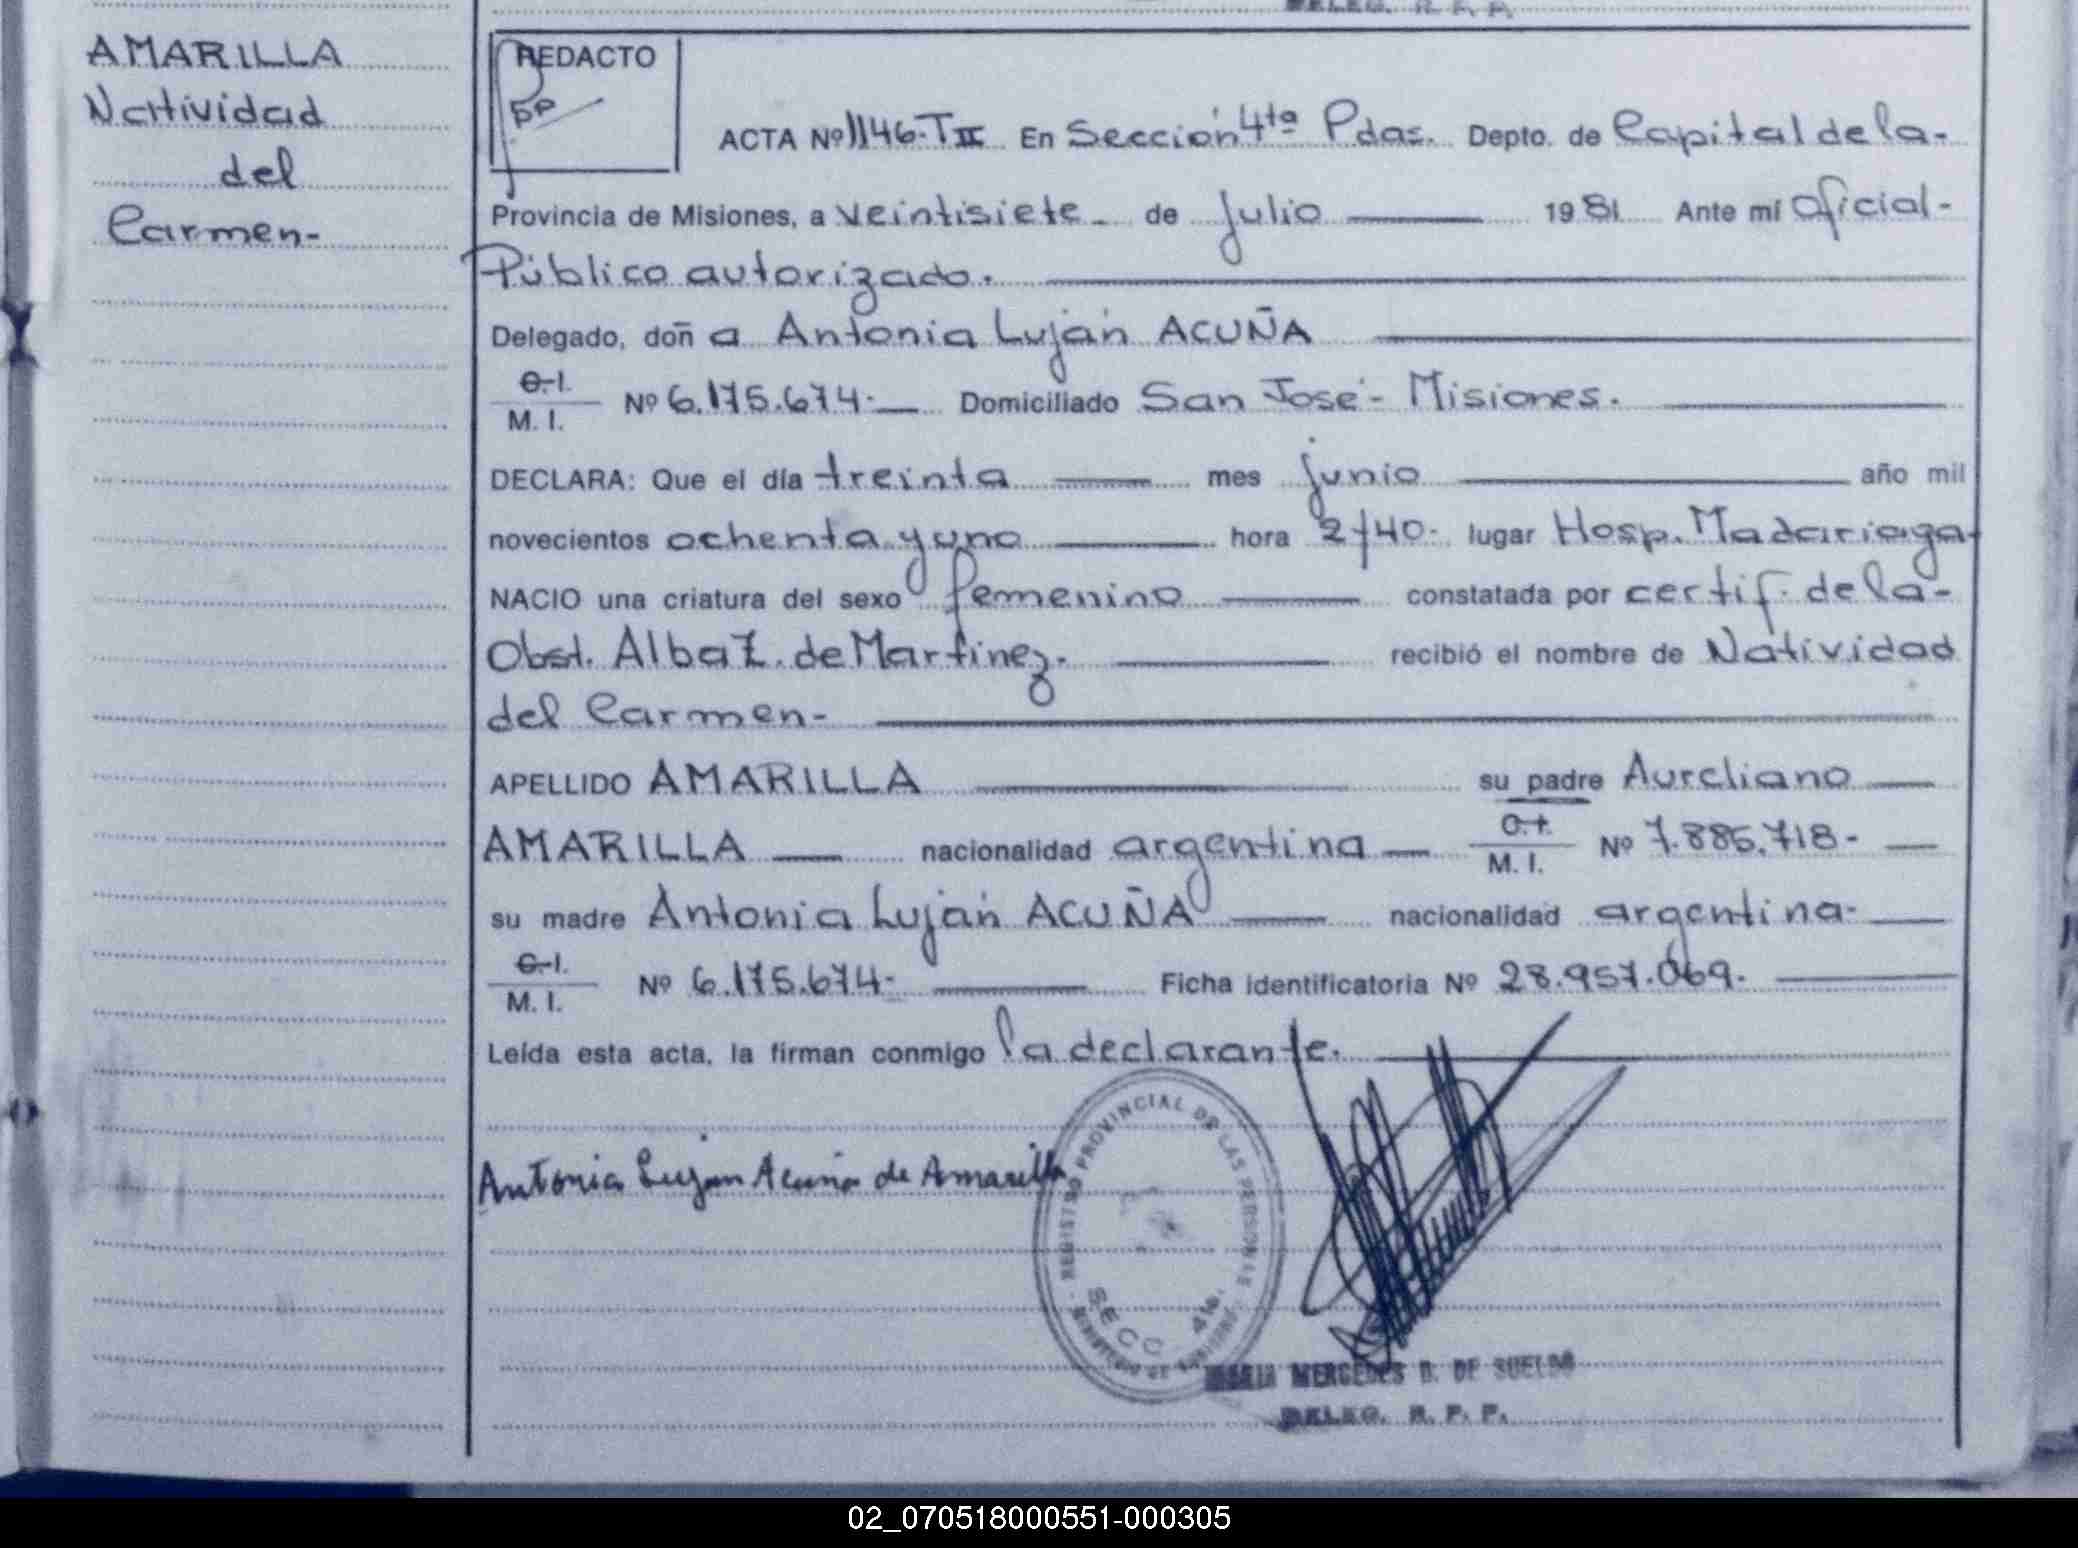 DELEG. R. P. P.
AMARILLA
Natividad
del
Carmen-
REDACTO
ACTA Nº 1146-TII En Sección 4ta Pdas. Depto. de Capital de la-
Provincia de Misiones, a veintisiete- de julio 1981 Ante mí Oficial-
Público autorizado.
Delegado, doña Antonia Luján ACUÑA
C.I.
M. I. Nº 6.175.674.- Domiciliado San José- Misiones.
DECLARA: Que el día treinta mes junio año mil
novecientos ochenta y uno hora 2/40- lugar Hosp. Madariaga-
NACIO una criatura del sexo femenino constatada por certif. de la-
Obst. Alba Z. de Martinez. recibió el nombre de Natividad
del Carmen-
APELLIDO AMARILLA su padre Aureliano
AMARILLA nacionalidad argentina C.I.
M. I. Nº 7.885.718-
su madre Antonia Luján ACUÑA nacionalidad argentina-
C.I.
M. I. Nº 6.175.674- Ficha identificatoria Nº 28.957.069.
Leída esta acta, la firman conmigo la declarante.
Antonia Lujan Acuña de Amarilla
REGISTRO PROVINCIAL DE LAS PERSONAS
SECC 4ta.
MARIA MERCEDES D. DE SUELDO
DELEG. R. P. P.
02_070518000551-000305